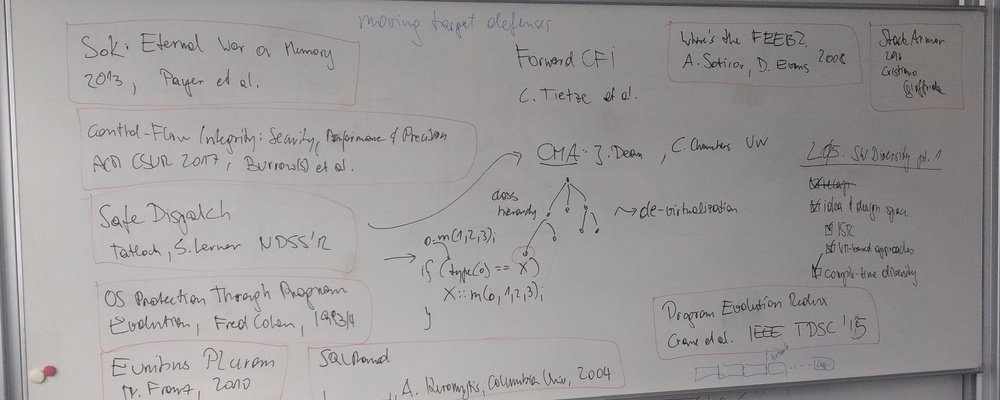 moving target defenses
SoK: Eternal War on Memory
2013, Payer et al.
Control-Flow Integrity: Security, Performance & Precision
ACM CSUR 2017, Burow(s) et al.
Safe Dispatch
Tatlock, S. Lerner NDSS'12
OS Protection Through Program
Evolution, Fred Cohen, 1993/4
Eunibus Pluram
M. Franz, 2010
SQLRand
A. Keromytis, Columbia Univ, 2004
Forward CFI
C. Tietze et al.
CHA: J. Dean, C. Chambers UW
class
hierarchy
de-virtualization
o.m(1,2,3);
if (type(o) == X)
X::m(o,1,2,3);
}
Where's the FEEB?
A. Sotirov, D. Evans 2008
StackArmor
2014
Cristiano
Giuffrida
L05: SW Diversity pt. 1
recap
idea & design space
ISR
VM-based approaches
compile-time diversity
Program Evolution Redux
Crane et al. IEEE TDSC '15